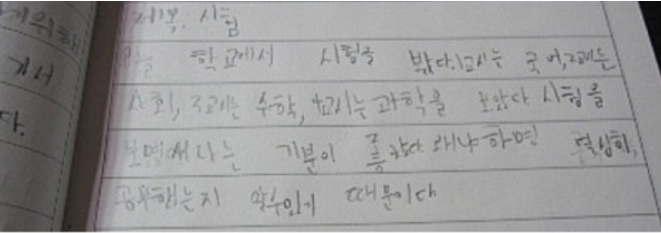 거위해
제목: 시험
거서
오늘 학교에서 시험을 봤다.1교시는 국어,2교시는
다.
사회, 3교시는 수학, 4교시는과학을 보았다 시험을
보면서나는 기분이 좋았다 왜냐하면 열심히,
공부했는지 알수있기 때문이다